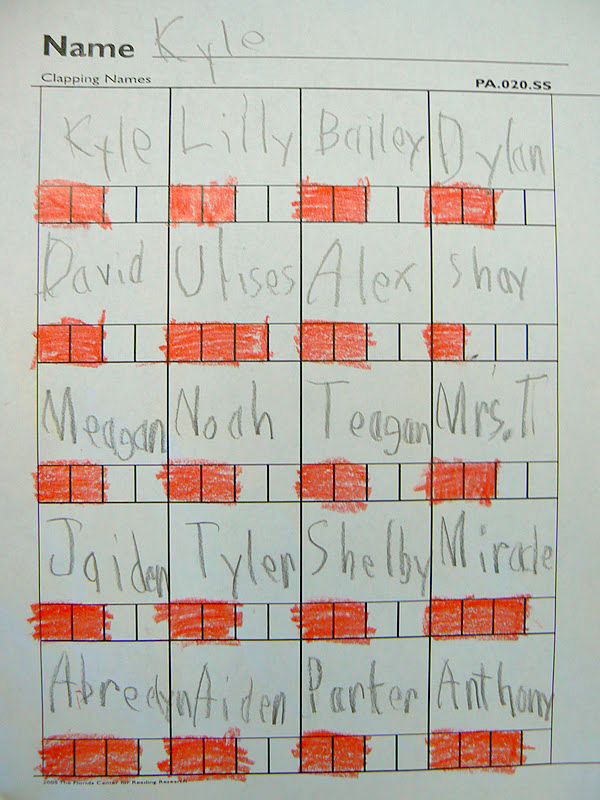 Name Kyle
Clapping Names PA.020.SS
Kyle Lilly Bailey Dylan
David Ulises Alex shay
Meagan Noah Teagan Mrs. T
Jaiden Tyler Shelby Miracle
Abredyn Aiden Parker Anthony
2005 The Florida Center for Reading Research